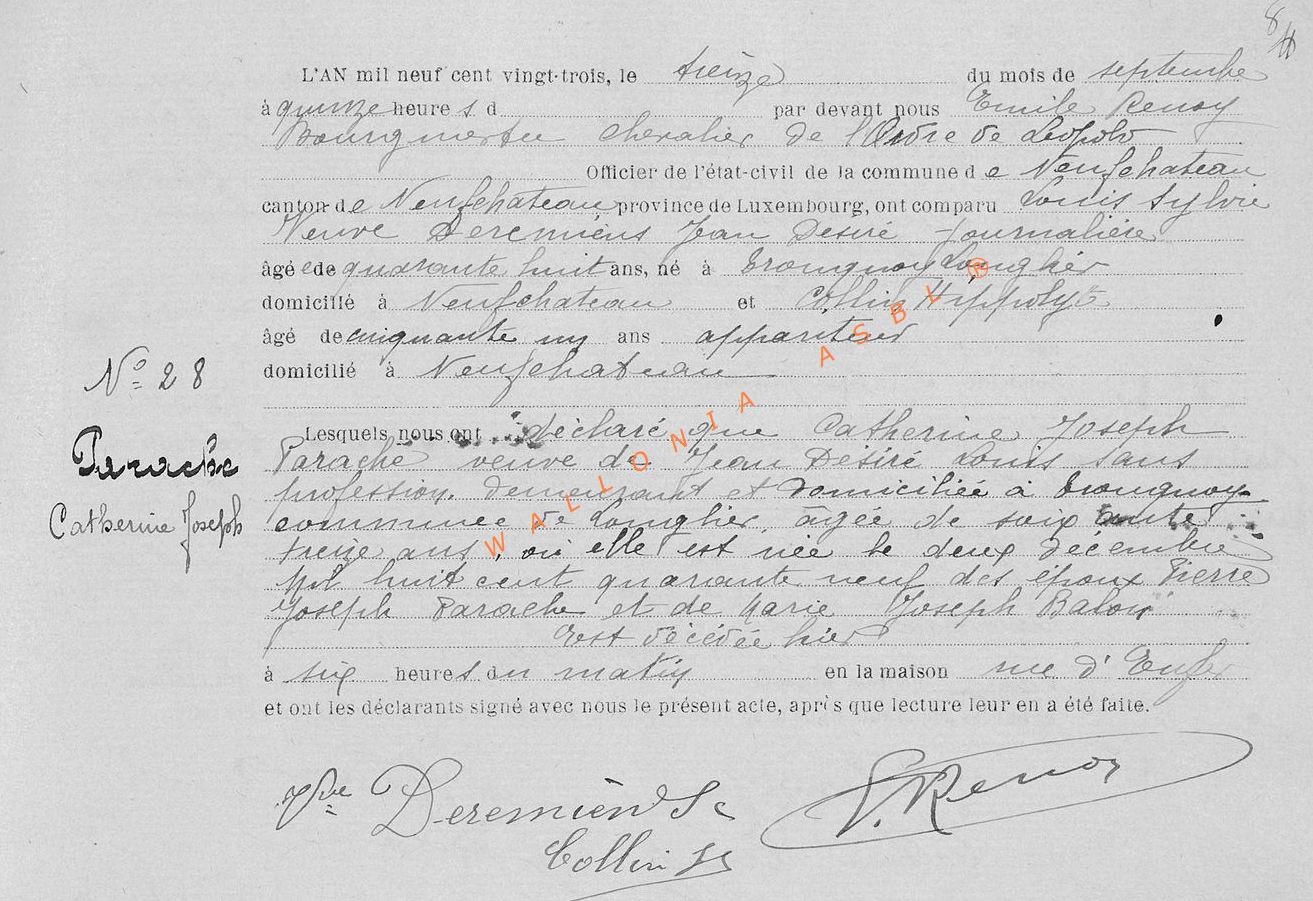 L'AN mil neuf cent vingt-trois, le treize du mois de septembre
à quinze heure s d par devant nous Emile Renoy
Bourgmestre chevalier de l'Ordre de Léopold
Officier de l'état-civil de la commune d e Neufchateau
canton de Neufchateau province de Luxembourg, ont comparu Louis Sylvie
Veuve Deremiens Jean Desiré journalière
âgé e de quarante huit ans, né à Trougnoy Longlier
domicilié à Neufchateau et Collin Hippolyte
âgé de cinquante un ans appariteur
domicilié à Neufchateau
Nº 28
Parache
Catherine Joseph
Lesquels nous ont déclaré que Catherine Joseph
Parache veuve de Jean Désiré Louis sans
profession. demeurant et domiciliée à Trougnoy
commune de Longlier, âgée de soixante
treize ans, où elle est née le deux décembre
mil huit cent quarante neuf des époux Pierre
Joseph Parache et de Marie Joseph
Est décédée hier
à six heure s du matin en la maison rue d'Enfer
et ont les déclarants signé avec nous le présent acte, après que lecture leur en a été faite.
Vve Deremiens
Collin
E. Renoy
WALLONIA ASBL ®